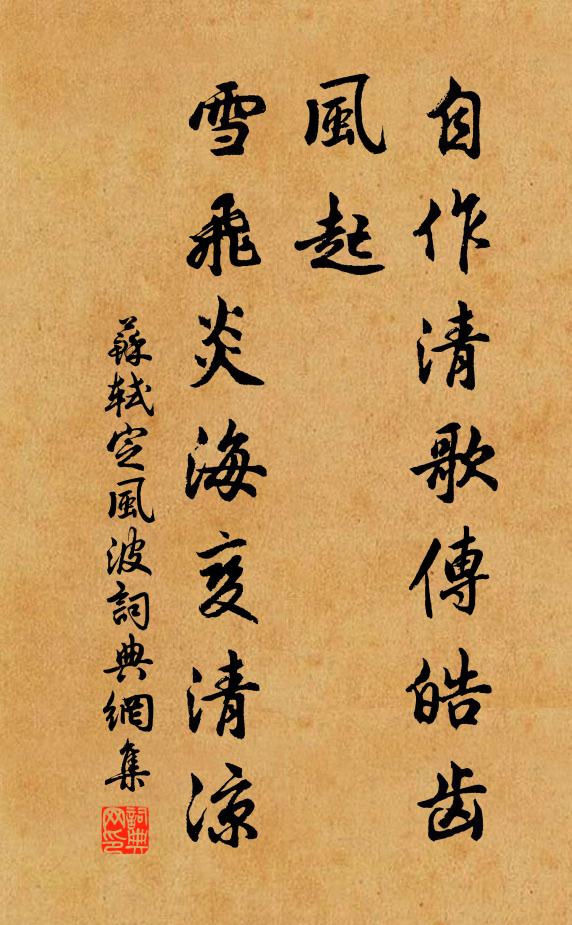 自作清歌傳皓齒
風起
雪飛炎海变清涼
蘇軾定風波詞典網集
詞典网印